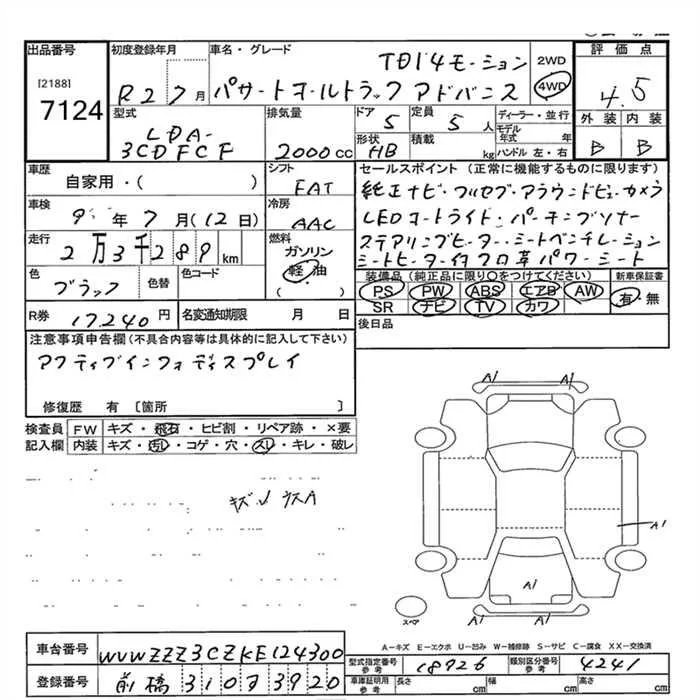 出品番号
[2188]
7124
初度登録年月
R2 7月
車名・グレード
TDI4モーション
パサートオールトラック アドバンス
2WD
4WD
評価点
4.5
外装 内装
B B
型式
LDA-
3CDFCF
排気量
2000cc
ドア 5
定員 5人
形状 HB
積載 kg
ディーラー・並行
モデル年式 年
ハンドル 左・右
車歴
自家用・( )
シフト
FAT
車検
9年7月(12日)
冷房
AAC
走行
2万3千289km
燃料
ガソリン
軽油
( )
色
ブラック
色替
色コード
R券 17,240円
名変通知期限 月 日
セールスポイント(正常に機能するものに限ります)
純正ナビ・フルセグ・アラウンドビューカメラ
LEDオートライト・パーキングソナー
ステアリングヒーター・シートベンチレーション
シートヒーター付フロ革パワーシート
装備品(純正品に限り○をつけてください)
PS PW ABS エアB AW
SR ナビ TV カワ
新車保証書
有・無
後日品
注意事項申告欄(不具合内容等は具体的に記入して下さい)
アクティブインフォディスプレイ
修復歴 有 [箇所 ]
検査員記入欄
FW キズ・飛石・ヒビ割・リペア跡・×要
内装 キズ・汚レ・コゲ・穴・スレ・キレ・破レ
A1 A1
A1
A1
スペア
A－キズ E－エクボ U－凹み W－補修跡 S－サビ C－腐食 XX－交換済
車台番号 WVWZZZ3CZKE124300
登録番号 前橋 310 ヲ 3920
型式指定番号 参考 18926
類別区分番号 参考 4241
車庫証明用 参考 長さ cm 幅 cm 高さ cm